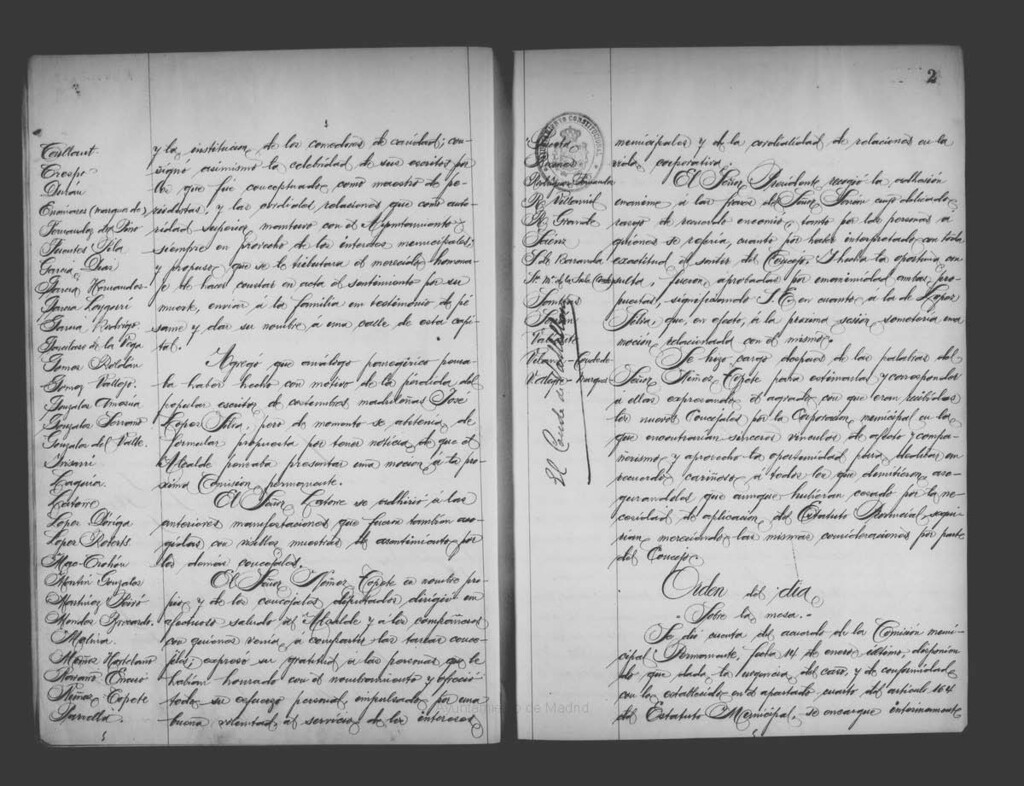 Coullaut
Crespo
Durán
Encinares (marqués de)
Fernández del Pino
Fuentes Pila
García Díaz
García Hernández
García Loygorri
García Rodrigo
González de la Vega
Gómez Roldán
Gómez Vallejo
González Amezúa
González Serrano
González del Valle
Irisarri
Laguía
Latorre
López Dóriga
López Roberts
Mayo
Martín González
Martínez
Méndez
Molina
Muñoz
Navarro Enciso
Núñez Topete
Parrella
y la institución de los comedores de caridad; con-
signó asimismo la celebridad de sus escritos por
los que fué conceptuado como maestro de pe-
riodistas, y las cordiales relaciones que como auto-
ridad superior mantuvo con el Ayuntamiento
siempre en provecho de los intereses municipales;
y propuso que se le tributara el merecido homena-
je de hacer constar en acta el sentimiento por su
muerte, enviar á la familia un testimonio de pé-
same y dar su nombre á una calle de esta capi-
tal.
Agregó que análogo panegírico pensa-
ba haber hecho con motivo de la pérdida del
popular escritor de costumbres madrileñas José
López Silva, pero de momento se abstenía de
formular propuesta por tener noticia de que el
Alcalde pensaba presentar una moción á la pró-
xima Comisión permanente.
El Señor Latorre se adhirió á las
anteriores manifestaciones que fueron también aco-
gidas con visibles muestras de asentimiento por
los demás concejales.
El Señor Núñez Topete en nombre pro-
pio y de los concejales diputados dirigió un
afectuoso saludo al Alcalde y á los compañeros
con quienes venía á compartir las tareas conce-
jiles; expresó su gratitud á las personas que le
habían honrado con el nombramiento y ofreció
todo su esfuerzo personal, impulsado por una
buena voluntad, al servicio de los intereses
2
Rodríguez
R. Villamil
R. Grande
Sáenz
S. de Baranda
St.ª M.ª de la Sisla (Conde
Valiente
Vilana Conde de
Vellagó Marqués
El Conde de Vallellano
municipales y de la cordialidad de relaciones en la
vida corporativa.
El Señor Presidente recogió la adhesión
unánime á las frases del Señor Durán cuyo delicado
rasgo de recuerdo encomió, tanto por las personas á
quienes se refería cuanto por haber interpretado con toda
exactitud el sentir del Concejo. Hecha la oportuna con-
sulta, fueron aprobadas por unanimidad ambas pro-
puestas, significando S. E. en cuanto á la de López
Silva, que, en efecto, á la próxima sesión sometería una
moción relacionada con el mismo.
Se hizo cargo después de las palabras del
Señor Núñez Topete para estimarlas y corresponder
á ellas expresando el agrado con que eran recibidos
los nuevos Concejales por la Corporación municipal en la
que encontrarían sinceros vínculos de afecto y compa-
ñerismo y aprovechó la oportunidad para dedicar un
recuerdo cariñoso á todos los que dimitieron ase-
gurándoles que aunque hubieran cesado por la ne-
cesidad de aplicación del Estatuto Provincial, segui-
rían mereciendo las mismas consideraciones por parte
del Concejo.
Orden del día
Sobre la mesa.
Se dió cuenta del acuerdo de la Comisión muni-
cipal Permanente, fecha 14 de enero último, disponien-
do que dada la urgencia del caso, y de conformidad
con lo establecido en el apartado cuarto del artículo 164
del Estatuto Municipal, se encargue interinamente
Ayuntamiento de Madrid